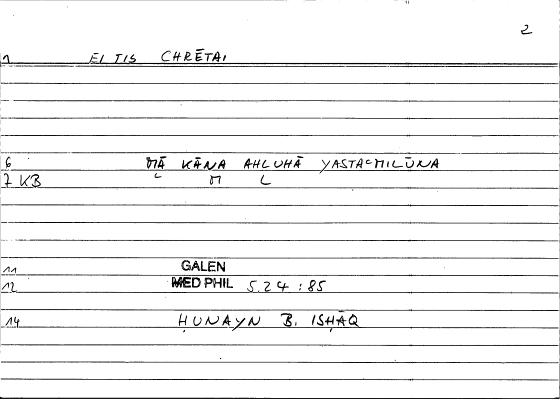 2
1 EI TIS CHRĒTAI
6 MĀ KĀNA AHLUHĀ YASTAʿMILŪNA
7 KB ʿ M L
11 GALEN
12 MED PHIL 5.24 : 85
14 ḤUNAYN B. ISḤĀQ